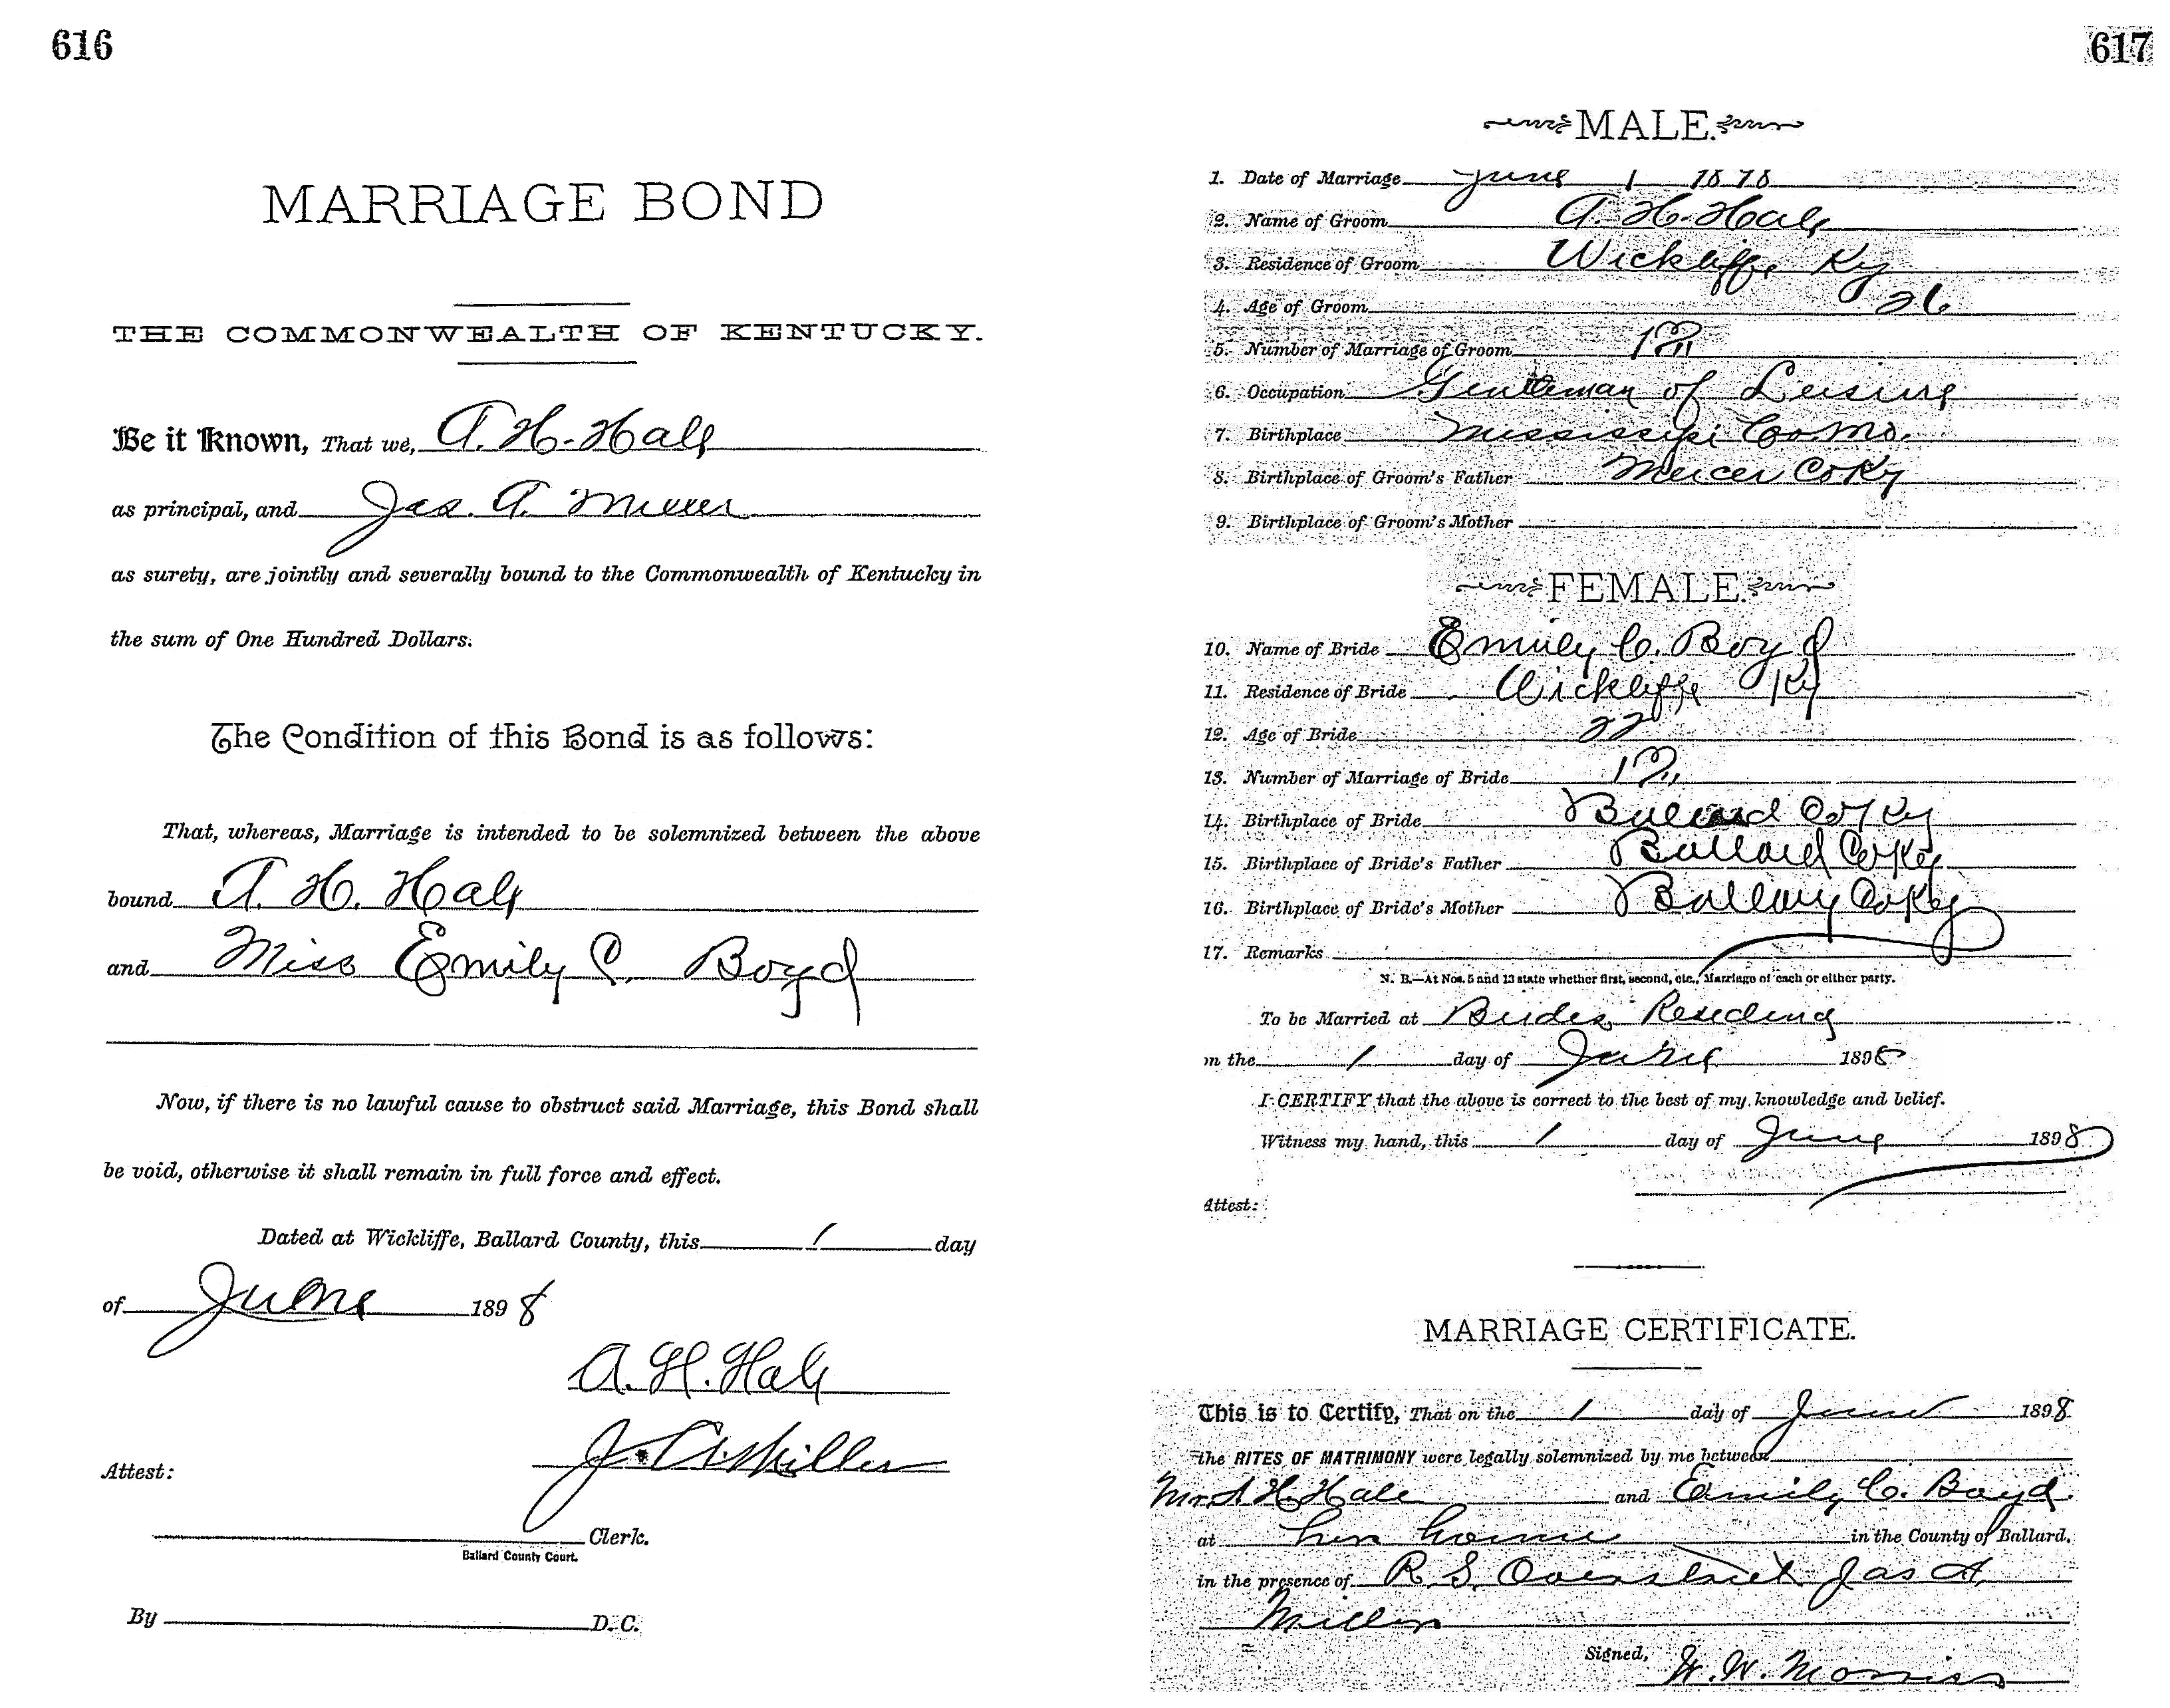 616
MARRIAGE BOND
THE COMMONWEALTH OF KENTUCKY.
Be it Known, That we, A. H. Hale
as principal, and Jas. A. Miller
as surety, are jointly and severally bound to the Commonwealth of Kentucky in
the sum of One Hundred Dollars.
The Condition of this Bond is as follows:
That, whereas, Marriage is intended to be solemnized between the above
bound A. H. Hale
and Miss Emily C. Boyd
Now, if there is no lawful cause to obstruct said Marriage, this Bond shall
be void, otherwise it shall remain in full force and effect.
Dated at Wickliffe, Ballard County, this 1 day
of June 1898
A. H. Hale
J. A. Miller
Attest:
Clerk.
Ballard County Court.
By D. C.
617
MALE.
1. Date of Marriage June 1 1898
2. Name of Groom A. H. Hale
3. Residence of Groom Wickliffe Ky
4. Age of Groom 26
5. Number of Marriage of Groom 1st
6. Occupation Gentleman of Leisure
7. Birthplace Mississippi Co. Mo.
8. Birthplace of Groom's Father Mercer Co Ky
9. Birthplace of Groom's Mother
FEMALE.
10. Name of Bride Emily C. Boyd
11. Residence of Bride Wickliffe Ky
12. Age of Bride 22
13. Number of Marriage of Bride 1st
14. Birthplace of Bride Ballard Co Ky
15. Birthplace of Bride's Father Ballard Co Ky
16. Birthplace of Bride's Mother Ballard Co Ky
17. Remarks
N. B.—At Nos. 5 and 13 state whether first, second, etc., Marriage of each or either party.
To be Married at Brides Residence
on the 1 day of June 1898
I CERTIFY that the above is correct to the best of my knowledge and belief.
Witness my hand, this 1 day of June 1898
Attest:
MARRIAGE CERTIFICATE.
This is to Certify, That on the 1 day of June 1898
the RITES OF MATRIMONY were legally solemnized by me between
Mr. A H. Hale and Emily C. Boyd
at her home in the County of Ballard,
in the presence of R. S. Overstreet Jas A
Miller
Signed, W. W. Morris